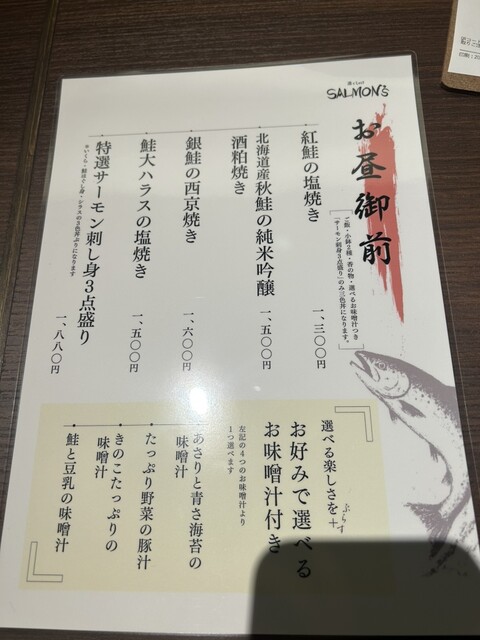 SALMON's
お昼御前
ご飯・小鉢2種・香の物・選べるお味噌汁つき
「サーモン刺身3点盛り」のみ三色丼になります。
紅鮭の塩焼き
一、三〇〇円
北海道産秋鮭の純米吟醸
酒粕焼き
一、五〇〇円
銀鮭の西京焼き
一、六〇〇円
鮭大ハラスの塩焼き
一、五〇〇円
特選サーモン刺し身3点盛り
一、八八〇円
選べる楽しさを+
ぷらす
お好みで選べる
お味噌汁付き
左記の4つのお味噌汁より
1つ選べます
あさりと青さ海苔の
味噌汁
たっぷり野菜の豚汁
きのこたっぷりの
味噌汁
鮭と豆乳の味噌汁